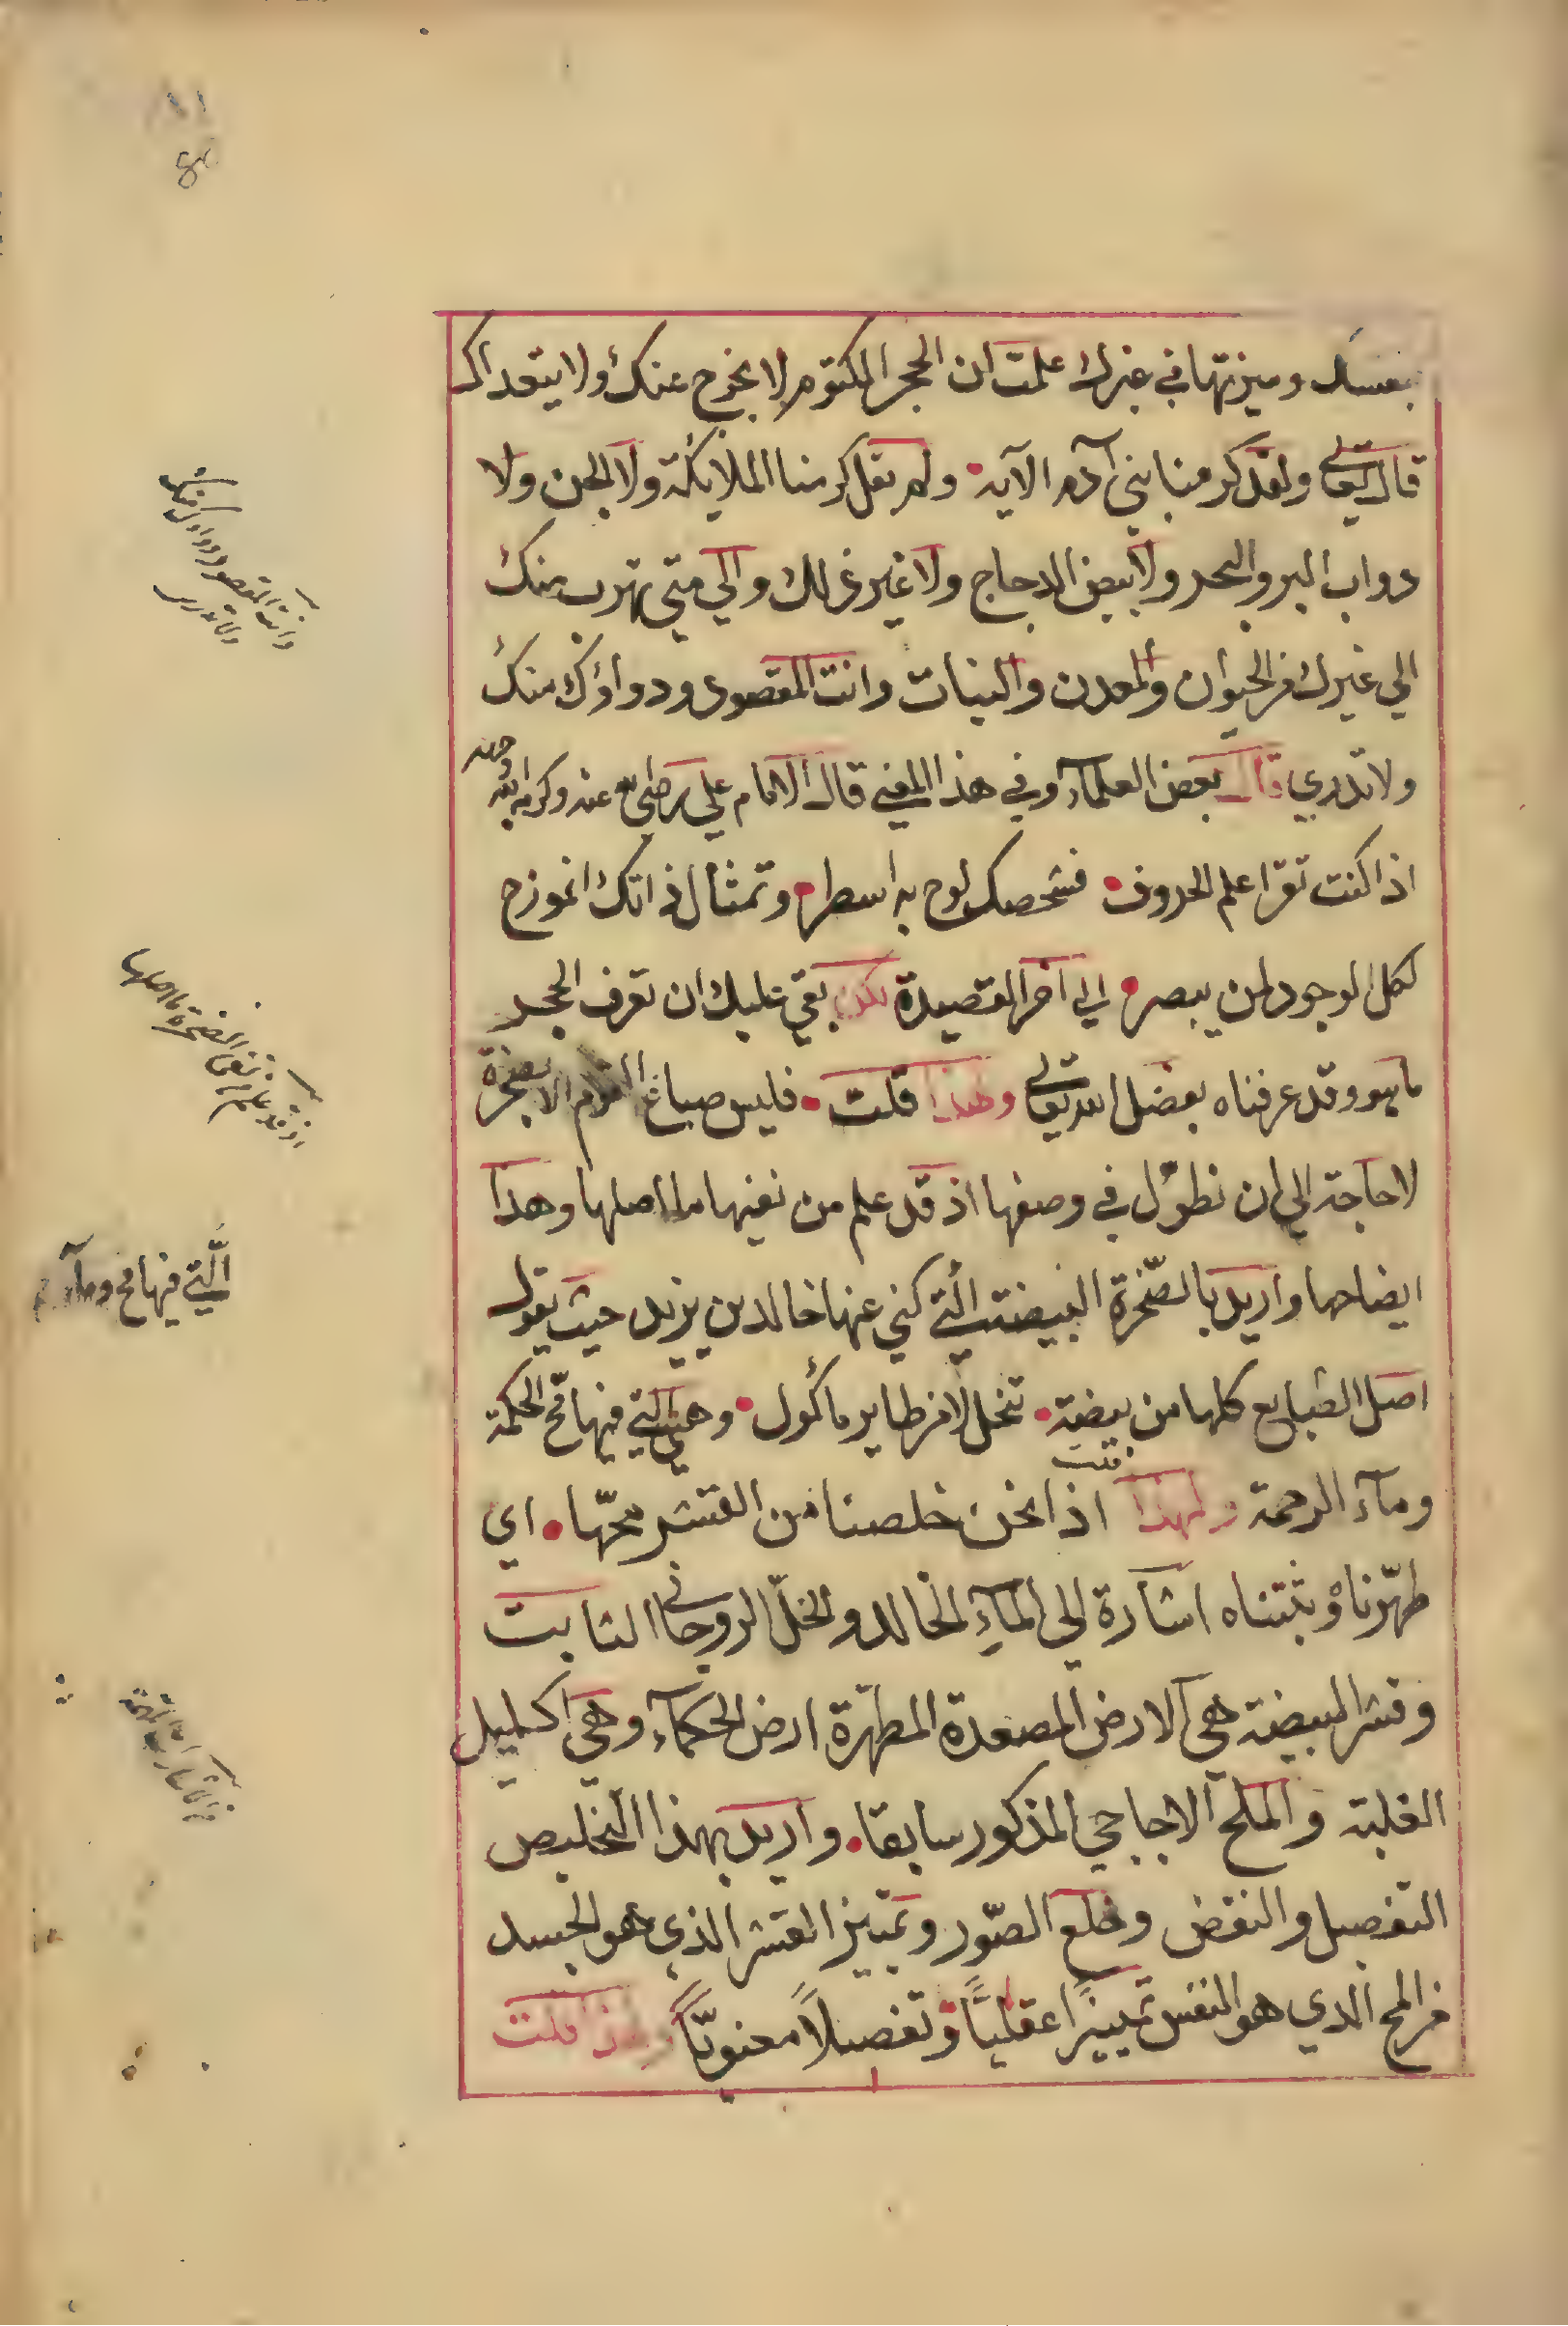 بنفسك وميزتها في غيرك علمت ان الحجر المكتوم لا يخرج عنك ولا يتعداك
قال تعالي ولقد كرمنا بني آدم الآية ولم يقل كرمنا الملايكة ولا الجن ولا
دواب البر والبحر ولا بيض الدجاج ولا غير ذلك والي متي تهرب منك
الي غيرك من الحيوان والمعدن والنبات وانت المقصود ودواؤك منك
ولا تدري قال بعض العلمآء وفي هذا المعني قال الامام علي رضي الله عنه وكرم الله وجهه
اذا كنت تقرا علم الحروف فشخصك لوح به اسطر وتمثال ذاتك انموزج
لكل الوجود لمن يبصر الي آخر القصيدة لكن بقي عليك ان تعرف الحجر
ما هو وقد عرفناه بفضل الله تعالي ولهذا قلت فليس صباغ القوم الا بصخرة
لا حاجة الي ان نطول في وصفها اذ قد علم من نفيها ما اصلها وهذا
ايضاحها واريد بالصّخرة البيضة الّتي كني عنها خالد بن يزيد حيث يقول
اصل الطبايع كلها من بيضة تنحل لا من طاير مأكول وهي الّتي فيها مح الحكمة
ومآء الرحمة ولهذا قلت اذا نحن خلصنا من القشر محّها اي
طهّرناه وثبتناه اشارة الي المآء الخالد والخلّ الروحاني الثابت
وقشر البيضة هي الارض المصعدة المطهرة ارض الحكمآء وهي اكليل
الغلبة والملح الاجاجي المذكور سابقا واريد بهذا التخليص
التفصيل والنقض وخلع الصّور وتمييز القشر الذي هو الجسد
من المح الذي هو النفس تمييزًا عقليًّا وتفصيلاً معنويًّا ولهذا قلت
وانت المقصود ودواؤك منك
ولا تدري
اذ قد علم من نفي الصخرة ما اصلها
الّتي فيها مح ومآء